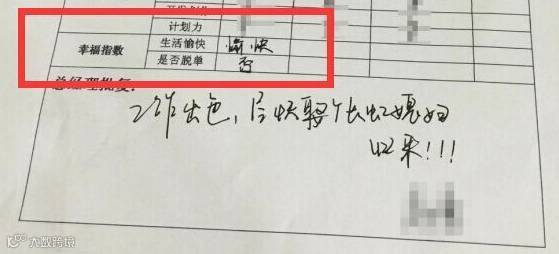 计划力
幸福指数
生活愉快 愉快
是否脱单 否
总经理批复:
工作出色,尽快娶个长虹媳妇
回来!!!
大数跨境